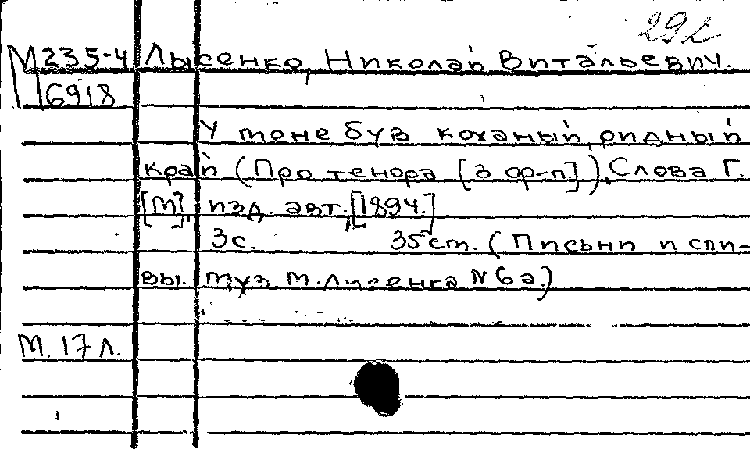 29 L
М235-4 Лысенко, Николай Витальевич.
16918
У мене був коханый, ридный
край (Про тенора [з ф-п]). Слова Г.
[М], изд. авт., [1894.]
3 с. 35 cm. (Писыни и спи-
вы. муз. М. Лисенка N 6а.)
М. 17 л.